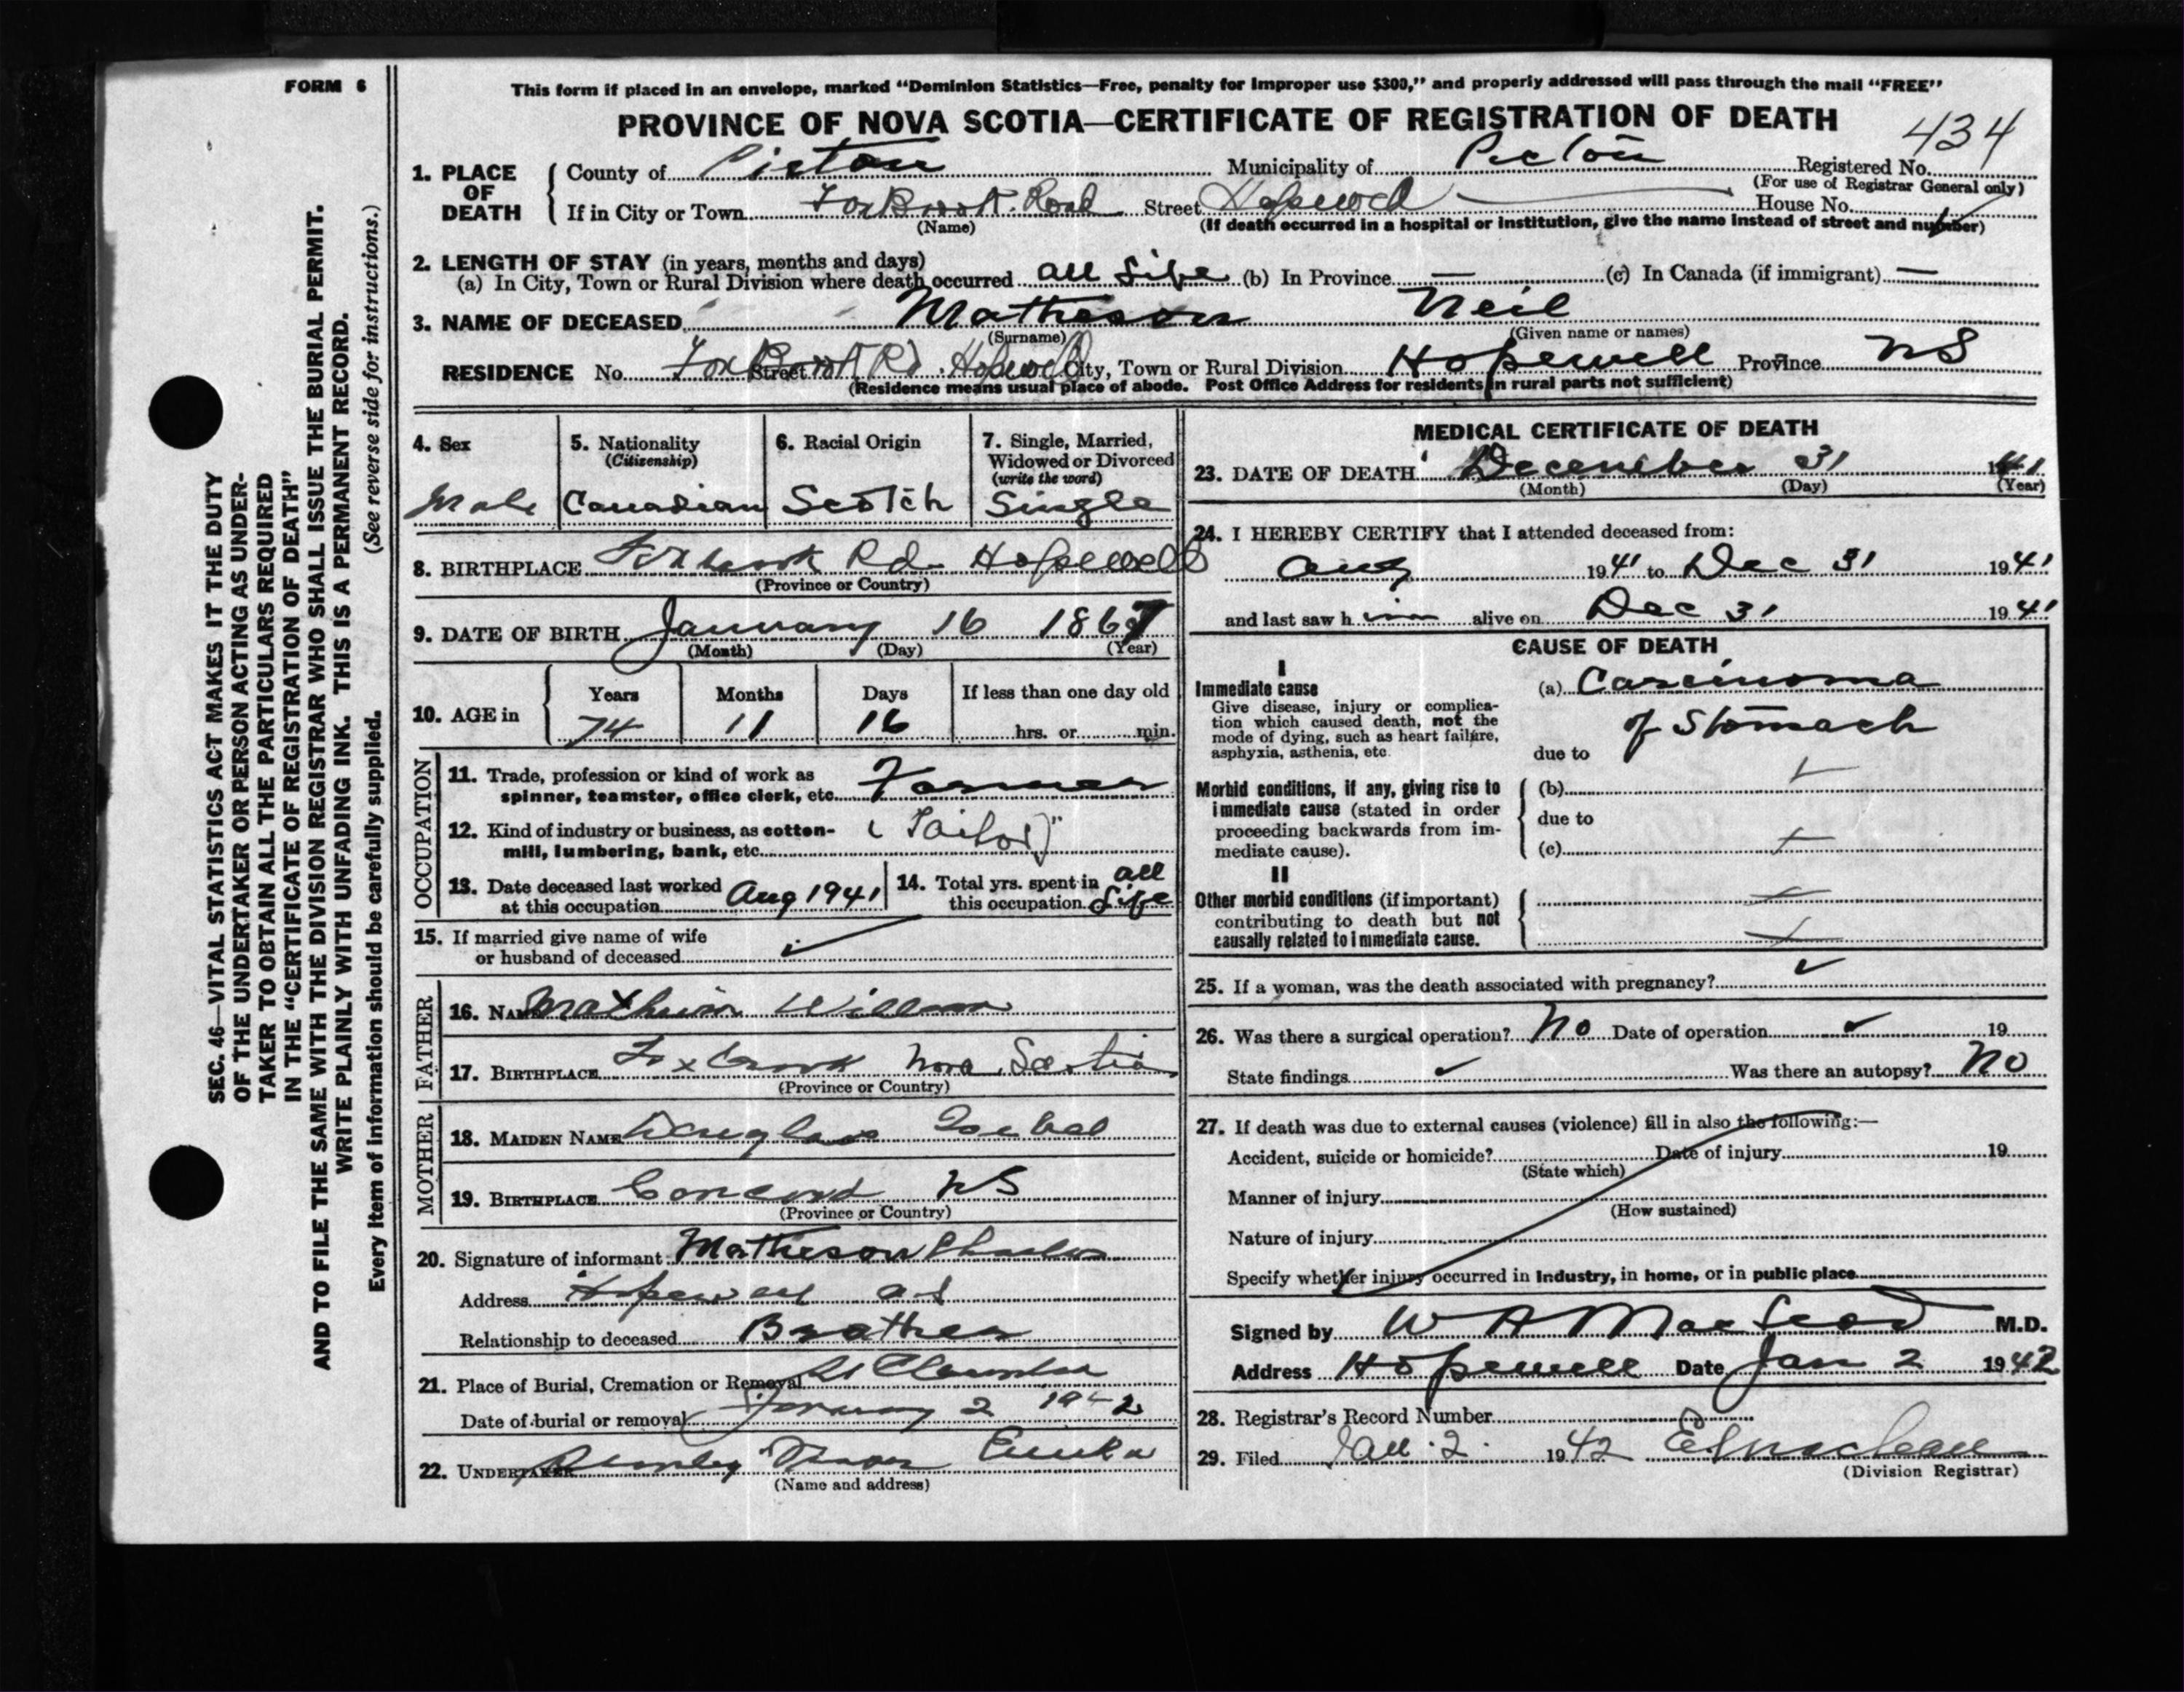 FORM 6
This form if placed in an envelope, marked "Dominion Statistics—Free, penalty for improper use $300," and properly addressed will pass through the mail "FREE"
PROVINCE OF NOVA SCOTIA—CERTIFICATE OF REGISTRATION OF DEATH
434
1. PLACE OF DEATH
County of Pictou Municipality of Pictou Registered No.
(For use of Registrar General only)
If in City or Town Foxbrook Road Street Hopewell House No.
(Name) (If death occurred in a hospital or institution, give the name instead of street and number)
2. LENGTH OF STAY (in years, months and days)
(a) In City, Town or Rural Division where death occurred all Life (b) In Province — (c) In Canada (if immigrant) —
3. NAME OF DECEASED Matheson Neil
(Surname) (Given name or names)
RESIDENCE No. Foxbrook Rd. Hopewell Street City, Town or Rural Division Hopewell Province NS
(Residence means usual place of abode. Post Office Address for residents in rural parts not sufficient)
4. Sex
Male
5. Nationality
(Citizenship)
Canadian
6. Racial Origin
Scotch
7. Single, Married,
Widowed or Divorced
(write the word)
Single
8. BIRTHPLACE Foxbrook Rd. Hopewell
(Province or Country)
9. DATE OF BIRTH January 16 1867
(Month) (Day) (Year)
10. AGE in
Years Months Days If less than one day old
74 11 16 hrs. or min.
OCCUPATION
11. Trade, profession or kind of work as
spinner, teamster, office clerk, etc. Farmer
12. Kind of industry or business, as cotton-
mill, lumbering, bank, etc. (Tailor)"
13. Date deceased last worked
at this occupation Aug 1941
14. Total yrs. spent in
this occupation all Life
15. If married give name of wife
or husband of deceased
FATHER
16. NAME Matheson William
17. BIRTHPLACE Foxbrook Nova Scotia
(Province or Country)
MOTHER
18. MAIDEN NAME Douglas Isabel
19. BIRTHPLACE Concord NS
(Province or Country)
20. Signature of informant Matheson Charles
Address Hopewell
Relationship to deceased Brother
21. Place of Burial, Cremation or Removal
Date of burial or removal January 2 1942
22. UNDERTAKER Eureka
(Name and address)
MEDICAL CERTIFICATE OF DEATH
23. DATE OF DEATH December 31 1941
(Month) (Day) (Year)
24. I HEREBY CERTIFY that I attended deceased from:
Aug 1941 to Dec 31 1941
and last saw h im alive on Dec 31 1941
CAUSE OF DEATH
I
Immediate cause
Give disease, injury or complica-
tion which caused death, not the
mode of dying, such as heart failure,
asphyxia, asthenia, etc.
(a) Carcinoma
of Stomach
due to
Morbid conditions, if any, giving rise to
immediate cause (stated in order
proceeding backwards from im-
mediate cause).
(b)
due to
(c)
II
Other morbid conditions (if important)
contributing to death but not
causally related to immediate cause.
25. If a woman, was the death associated with pregnancy?
26. Was there a surgical operation? No Date of operation 19
State findings Was there an autopsy? No
27. If death was due to external causes (violence) fill in also the following:—
Accident, suicide or homicide? Date of injury 19
(State which)
Manner of injury
(How sustained)
Nature of injury
Specify whether injury occurred in industry, in home, or in public place
Signed by W A MacLeod M.D.
Address Hopewell Date Jan 2 1942
28. Registrar's Record Number
29. Filed Jan. 2. 1942
(Division Registrar)
SEC. 46—VITAL STATISTICS ACT MAKES IT THE DUTY
OF THE UNDERTAKER OR PERSON ACTING AS UNDER-
TAKER TO OBTAIN ALL THE PARTICULARS REQUIRED
IN THE "CERTIFICATE OF REGISTRATION OF DEATH"
AND TO FILE THE SAME WITH THE DIVISION REGISTRAR WHO SHALL ISSUE THE BURIAL PERMIT.
WRITE PLAINLY WITH UNFADING INK. THIS IS A PERMANENT RECORD.
Every item of information should be carefully supplied. (See reverse side for instructions.)